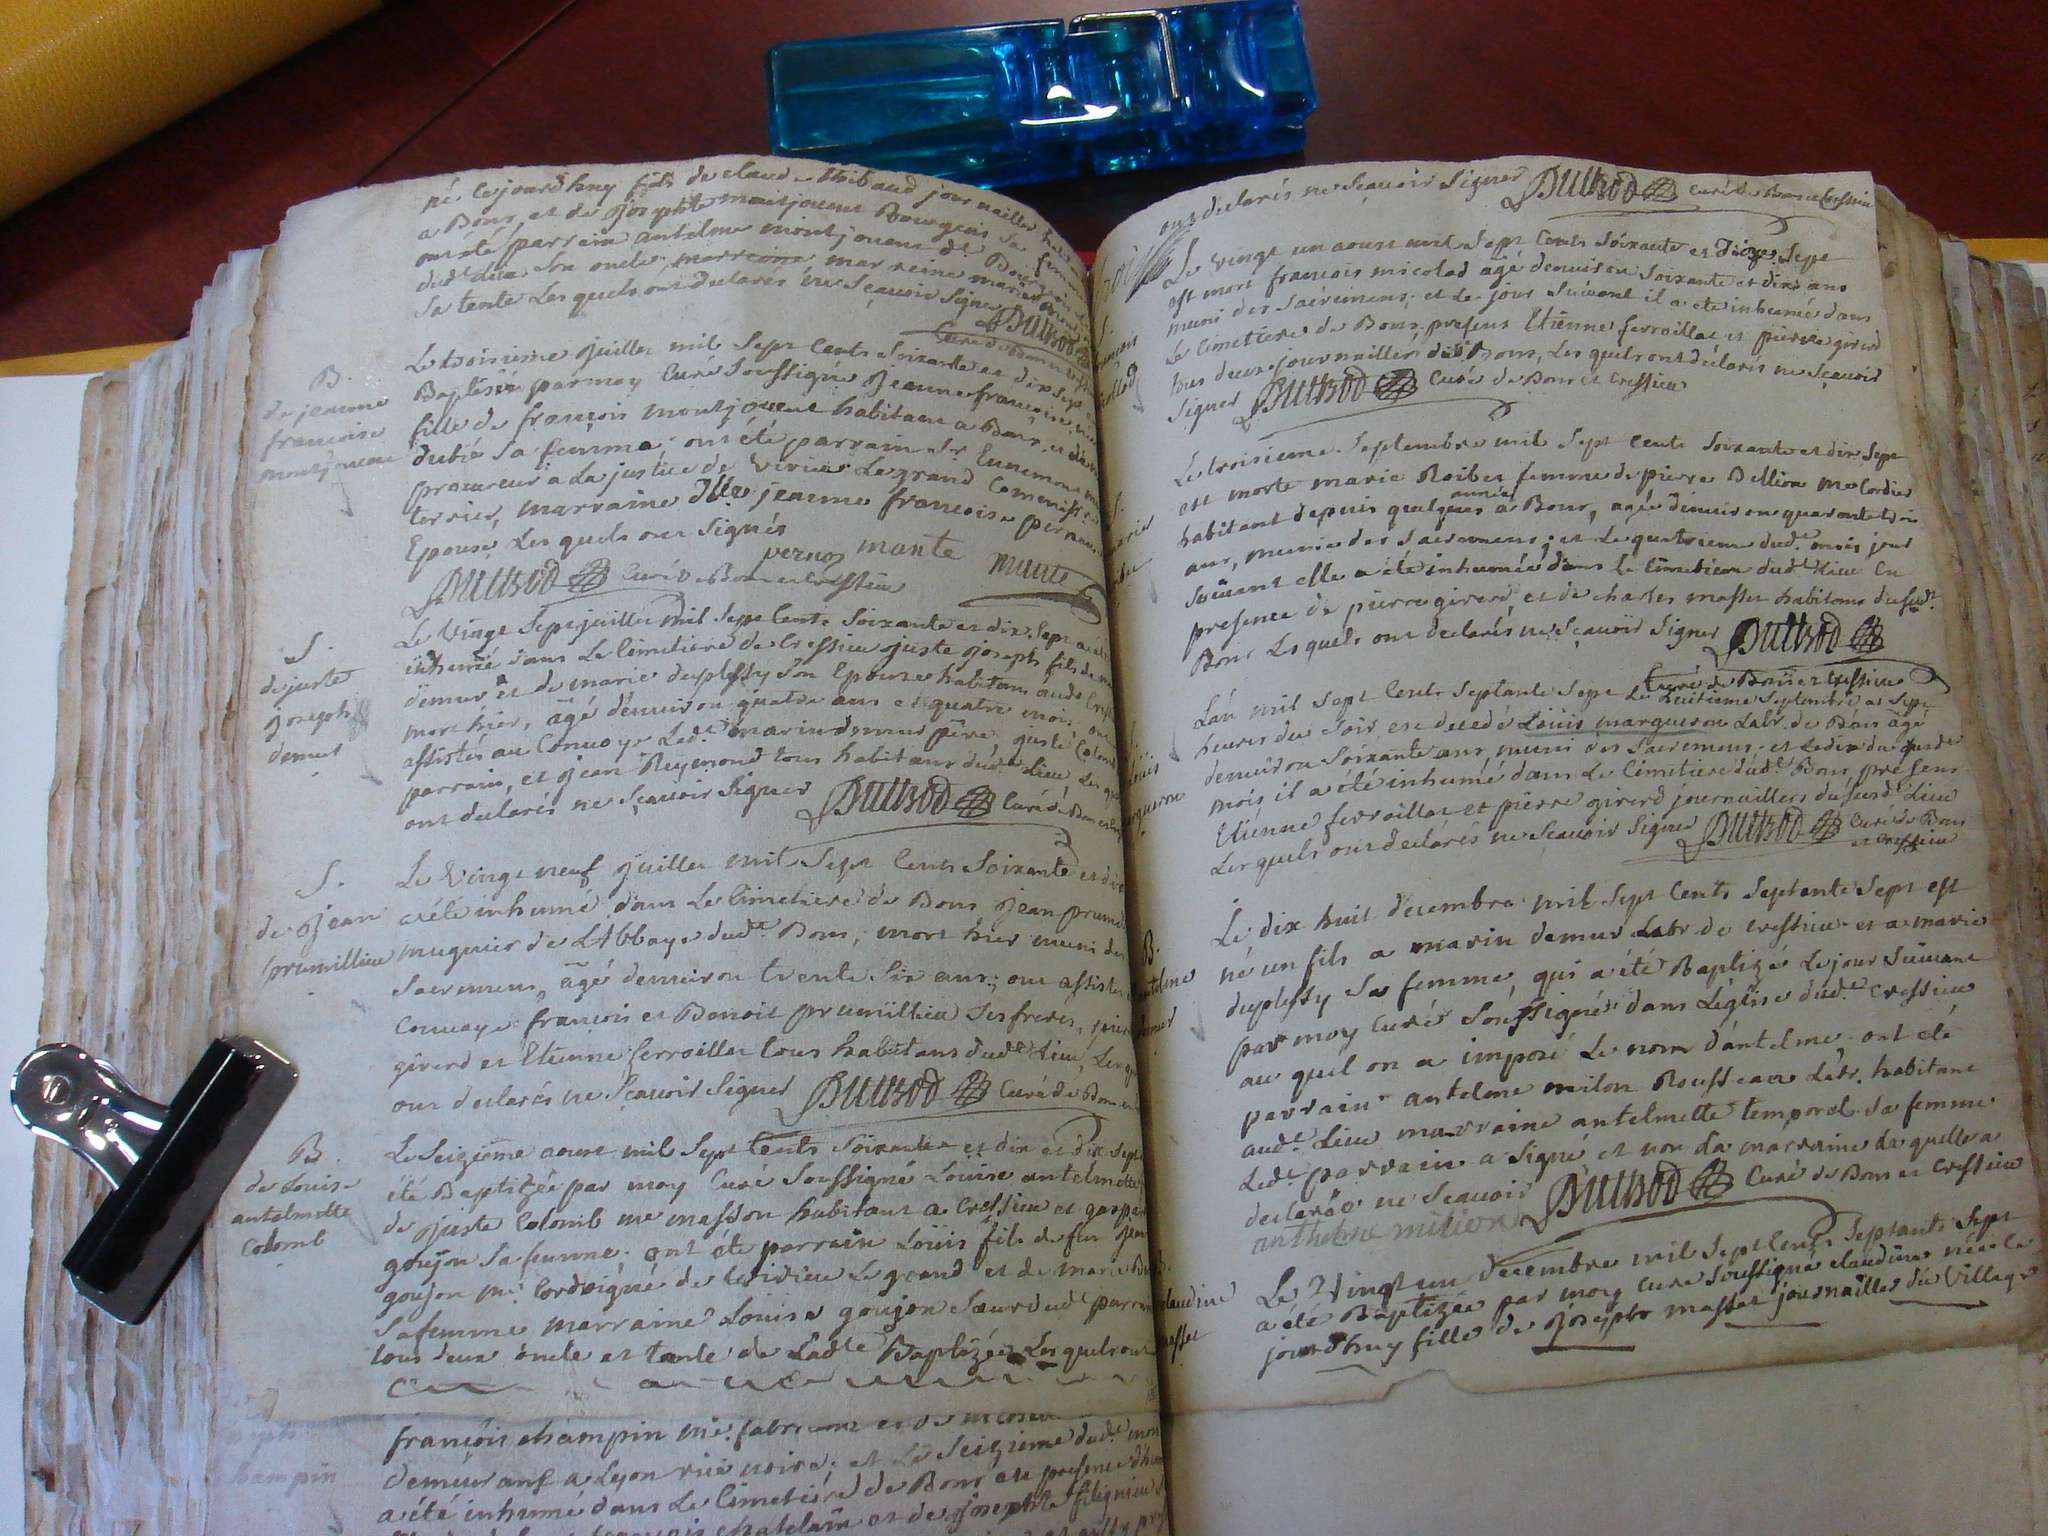 né cejourdhuy fils de claude thibaud journaillier
a Bons, et de Josephte montjouent Bourgeois sa femme
ont été parrain antelme montjouent dt Bourgeois
dudt lieu son oncle marreine marie
sa tente Lesquels ont declarés ne Sçavoir Signer
Dutisod
Curé de Bons et Cressieu
B.
de jeanne
françoise
montjouent
Le troisieme Juillet mil Sept Cents Soixante et dix Sept a
Baptisée par moy Curé Soussigné Jeanne françoise née
fille de françois montjouent habitant a Bons, et
dubié Sa femme ont été parrain Sr Ennemond
procureur a La justice de Virieu Le grand Commissaire
terrier, marraine Dlle jeanne francoise pernend
Epouse Lesquels ont Signés
vernoz mante mante
Dutisod Curé de Bons et Cressieu
S.
de juste
joseph
demur
Le Vingt Sept juillet mil Sept Cents Soixante et dix Sept a été
inhumé dans Le Cimetiere de Cressieu juste Joseph fils de
demur et de marie duplessy Son Epouse habitans audt
mort hier, âgé d'environ quatre ans et quatre mois ont
assistés au Convoy Ledt marin demur père, juste Colomb
parrain, et Jean Reymond tous habitans dudt Lieu Les quels
ont declarés ne Sçavoir Signer Dutisod Curé de Bons et
S.
de Jean
prumillieu
Le Vingt neuf Juillet mil Sept Cents Soixante et dix
a été inhumé dans Le Cimetiere de Bons Jean prumil
mugnier de L'Abbaye dudt Bons, mort hier muni des
Sacremens, âgé d'environ trente Six ans; ont assistés
Convoy françois et Benoit prumillieu Ses freres, pierre
girerd et Etienne ferroillat tous habitans dudt Lieu, Lesquels
ont declarés ne Sçavoir Signer Dutisod Curé de Bons et
B.
de Louise
antelmette
Colomb
Le Seizieme aoust mil Sept Cents Soixante et dix et dix Sept
été Baptizée par moy Curé Soussigné Louise antelmette
de Juste Colomb me masson habitant a Cressieu et
goujon Sa femme; ont été parrain Louis fils de feu Jean
goujon me Cordoigné de Virieu Le grand et de marie
Sa femme marraine Louise goujon Soeur dudt parrain
tous deux oncle et tante de Ladte Baptizée Lesquels ont
françois champin me fabricant
demeurant a Lyon rüe noire; et Le Seizieme dudt mois
a été inhumé dans Le Cimetiere de Bons en presence
chatelain et de Josephte
ont declarés ne Sçavoir Signer Dutisod Curé de Bons et Cressieu
Le Vingt un aoust mil Sept Cents Soixante et Dixe Sept
est mort françois micolad âgé d'environ Soixante et dix ans
muni des Sacremens; et Le jour Suivant il a été inhumé dans
Le Cimetiere de Bons presens Etienne ferroillat et pierre girerd
tous deux journailliers dudt Bons, Les quels ont déclarés ne Sçavoir
Signer Dutisod Curé de Bons et Cressieu
Le troisieme Septembre mil Sept Cents Soixante et dix Sept
est morte marie Roibet femme de pierre Bellion me Cordier
habitant depuis quelques années a Bons, agée d'environ quarante trois
ans, munie des Sacremens; et Le quatrieme dudt mois jour
Suivant elle a été inhumée dans le Cimetiere dudt Lieu En
presence de pierre girerd, et de charles masset habitans dusudt
Bons Les quels ont declarés ne Sçavoir Signer Dutisod
Curé de Bons et Cressieu
Louis
margueron
L'an mil Sept Cents Septante Sept Le huitieme Septembre a Sept
heures du Soir est decedé Louis margueron Labr de Bons âgé
d'environ Soixante ans, muni des Sacremens; et Le dix du susdt
mois il a été inhumé dans Le Cimetiere dudt Bons, presens
Etienne ferroillat et pierre girerd journailliers du susdt Lieu
Lesquels ont declarés ne Sçavoir Signer Dutisod Curé de Bons
et Cressieu
B.
antelme
demur
Le dix huit decembre mil Sept Cents Septante Sept est
né un fils a marin demur Labr de Cressieu et a marie
duplessy Sa femme, qui a été Baptizé Le jour Suivant
par moy Curé Soussigné dans L'église dudt Cressieu
au quel on a imposé Le nom d'antelme ont été
parrain antelme milon Rousseau Labr. habitant
audt Lieu marraine antelmette temporel Sa femme
Ledt parrain a Signé et non La marraine La quelle a
declarée ne Sçavoir Dutisod Curé de Bons et Cressieu
anthelme milion
claudine
masset
Le Vingt un decembre mil Sept Cents Septante Sept
a été Baptizée par moy Curé Soussigné claudine née le
jourd'huy fille de Joseph masset journaillier du Village